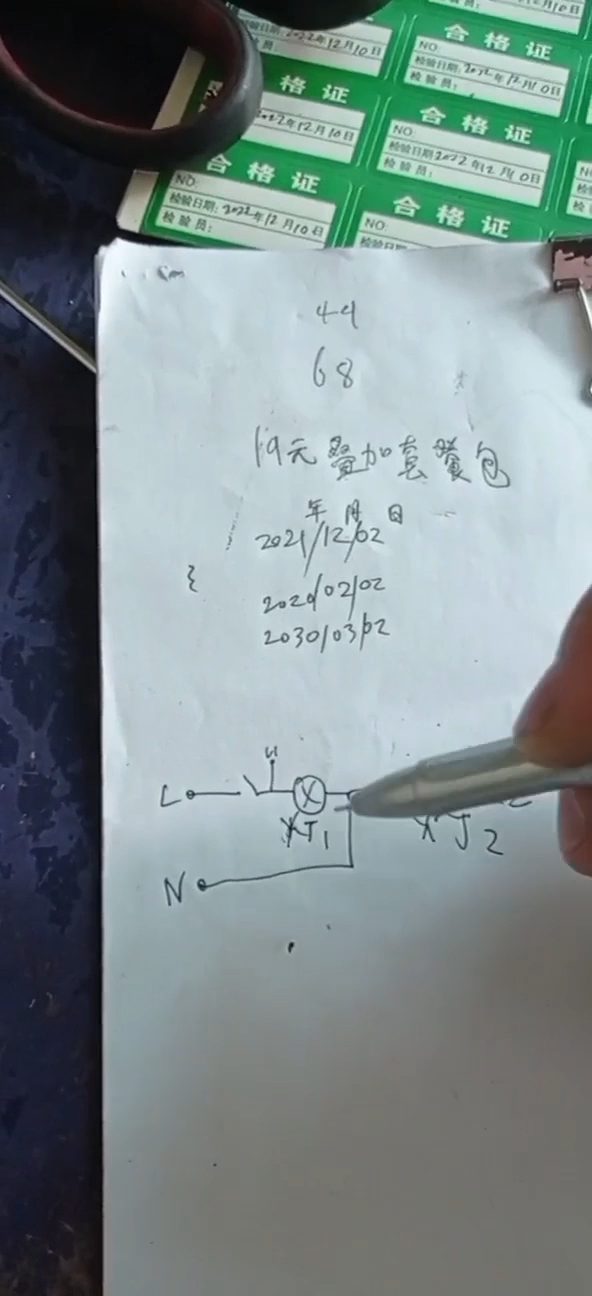 2022年12月10日
12月10日
检验日期:2022年12月10日
检验员:
合格证
NO:
检验日期:2022年12月10日
检验员:
格证
2022年12月10日
合格证
NO:
检验日期:2022年12月10日
检验员:
合格证
NO:
检验日期:2022年12月10日
检验员:
合格证
NO:
检验日期
44
68
19元叠加套餐包
年月日
2021/12/02
2020/02/02
2030/03/02
L
N